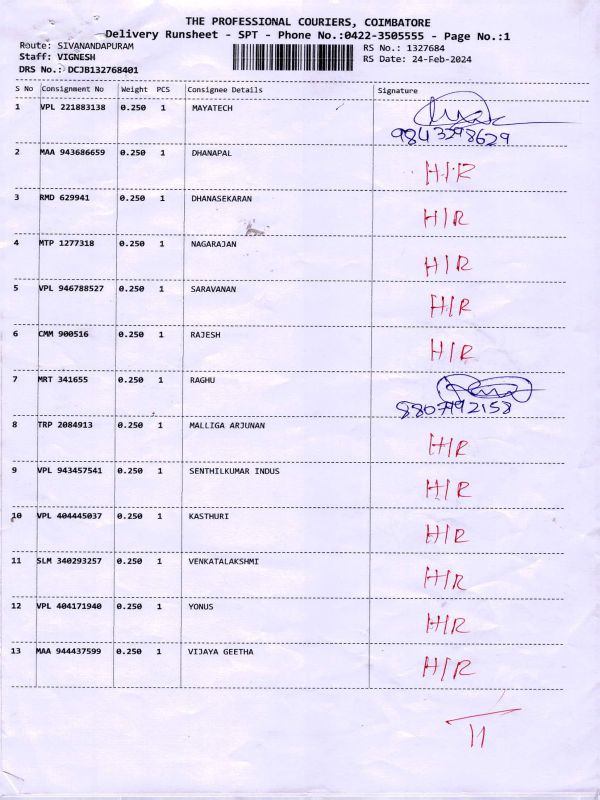 THE PROFESSIONAL COURIERS, COIMBATORE
Delivery Runsheet - SPT - Phone No.:0422-3505555 - Page No.:1
Route: SIVANANDAPURAM
Staff: VIGNESH
DRS No.: DCJB132768401
RS No.: 1327684
RS Date: 24-Feb-2024
S No Consignment No Weight PCS Consignee Details Signature
1 VPL 221883138 0.250 1 MAYATECH
9843398629
2 MAA 943686659 0.250 1 DHANAPAL H/R
3 RMD 629941 0.250 1 DHANASEKARAN H/R
4 MTP 1277318 0.250 1 NAGARAJAN H/R
5 VPL 946788527 0.250 1 SARAVANAN H/R
6 CMM 900516 0.250 1 RAJESH H/R
7 MRT 341655 0.250 1 RAGHU
8807992158
8 TRP 2084913 0.250 1 MALLIGA ARJUNAN H/R
9 VPL 943457541 0.250 1 SENTHILKUMAR INDUS H/R
10 VPL 404445037 0.250 1 KASTHURI H/R
11 SLM 340293257 0.250 1 VENKATALAKSHMI H/R
12 VPL 404171940 0.250 1 YONUS H/R
13 MAA 944437599 0.250 1 VIJAYA GEETHA H/R
11